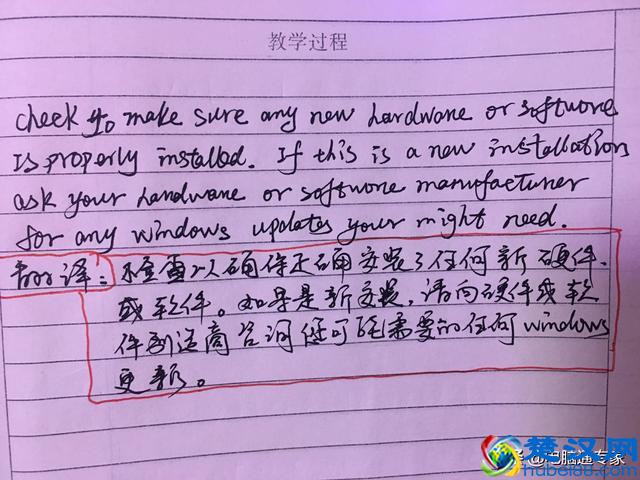 教学过程
check to make sure any new hardware or software
Is properly installed. If this is a new installation
ask your hardware or software manufacturer
for any windows updates your might need.
翻译:检查以确保正确安装了任何新硬件
或软件。如果是新安装,请向硬件或软
件制造商咨询您可能需要的任何windows
更新。
@电脑通专家
楚汉网
hubei88.com